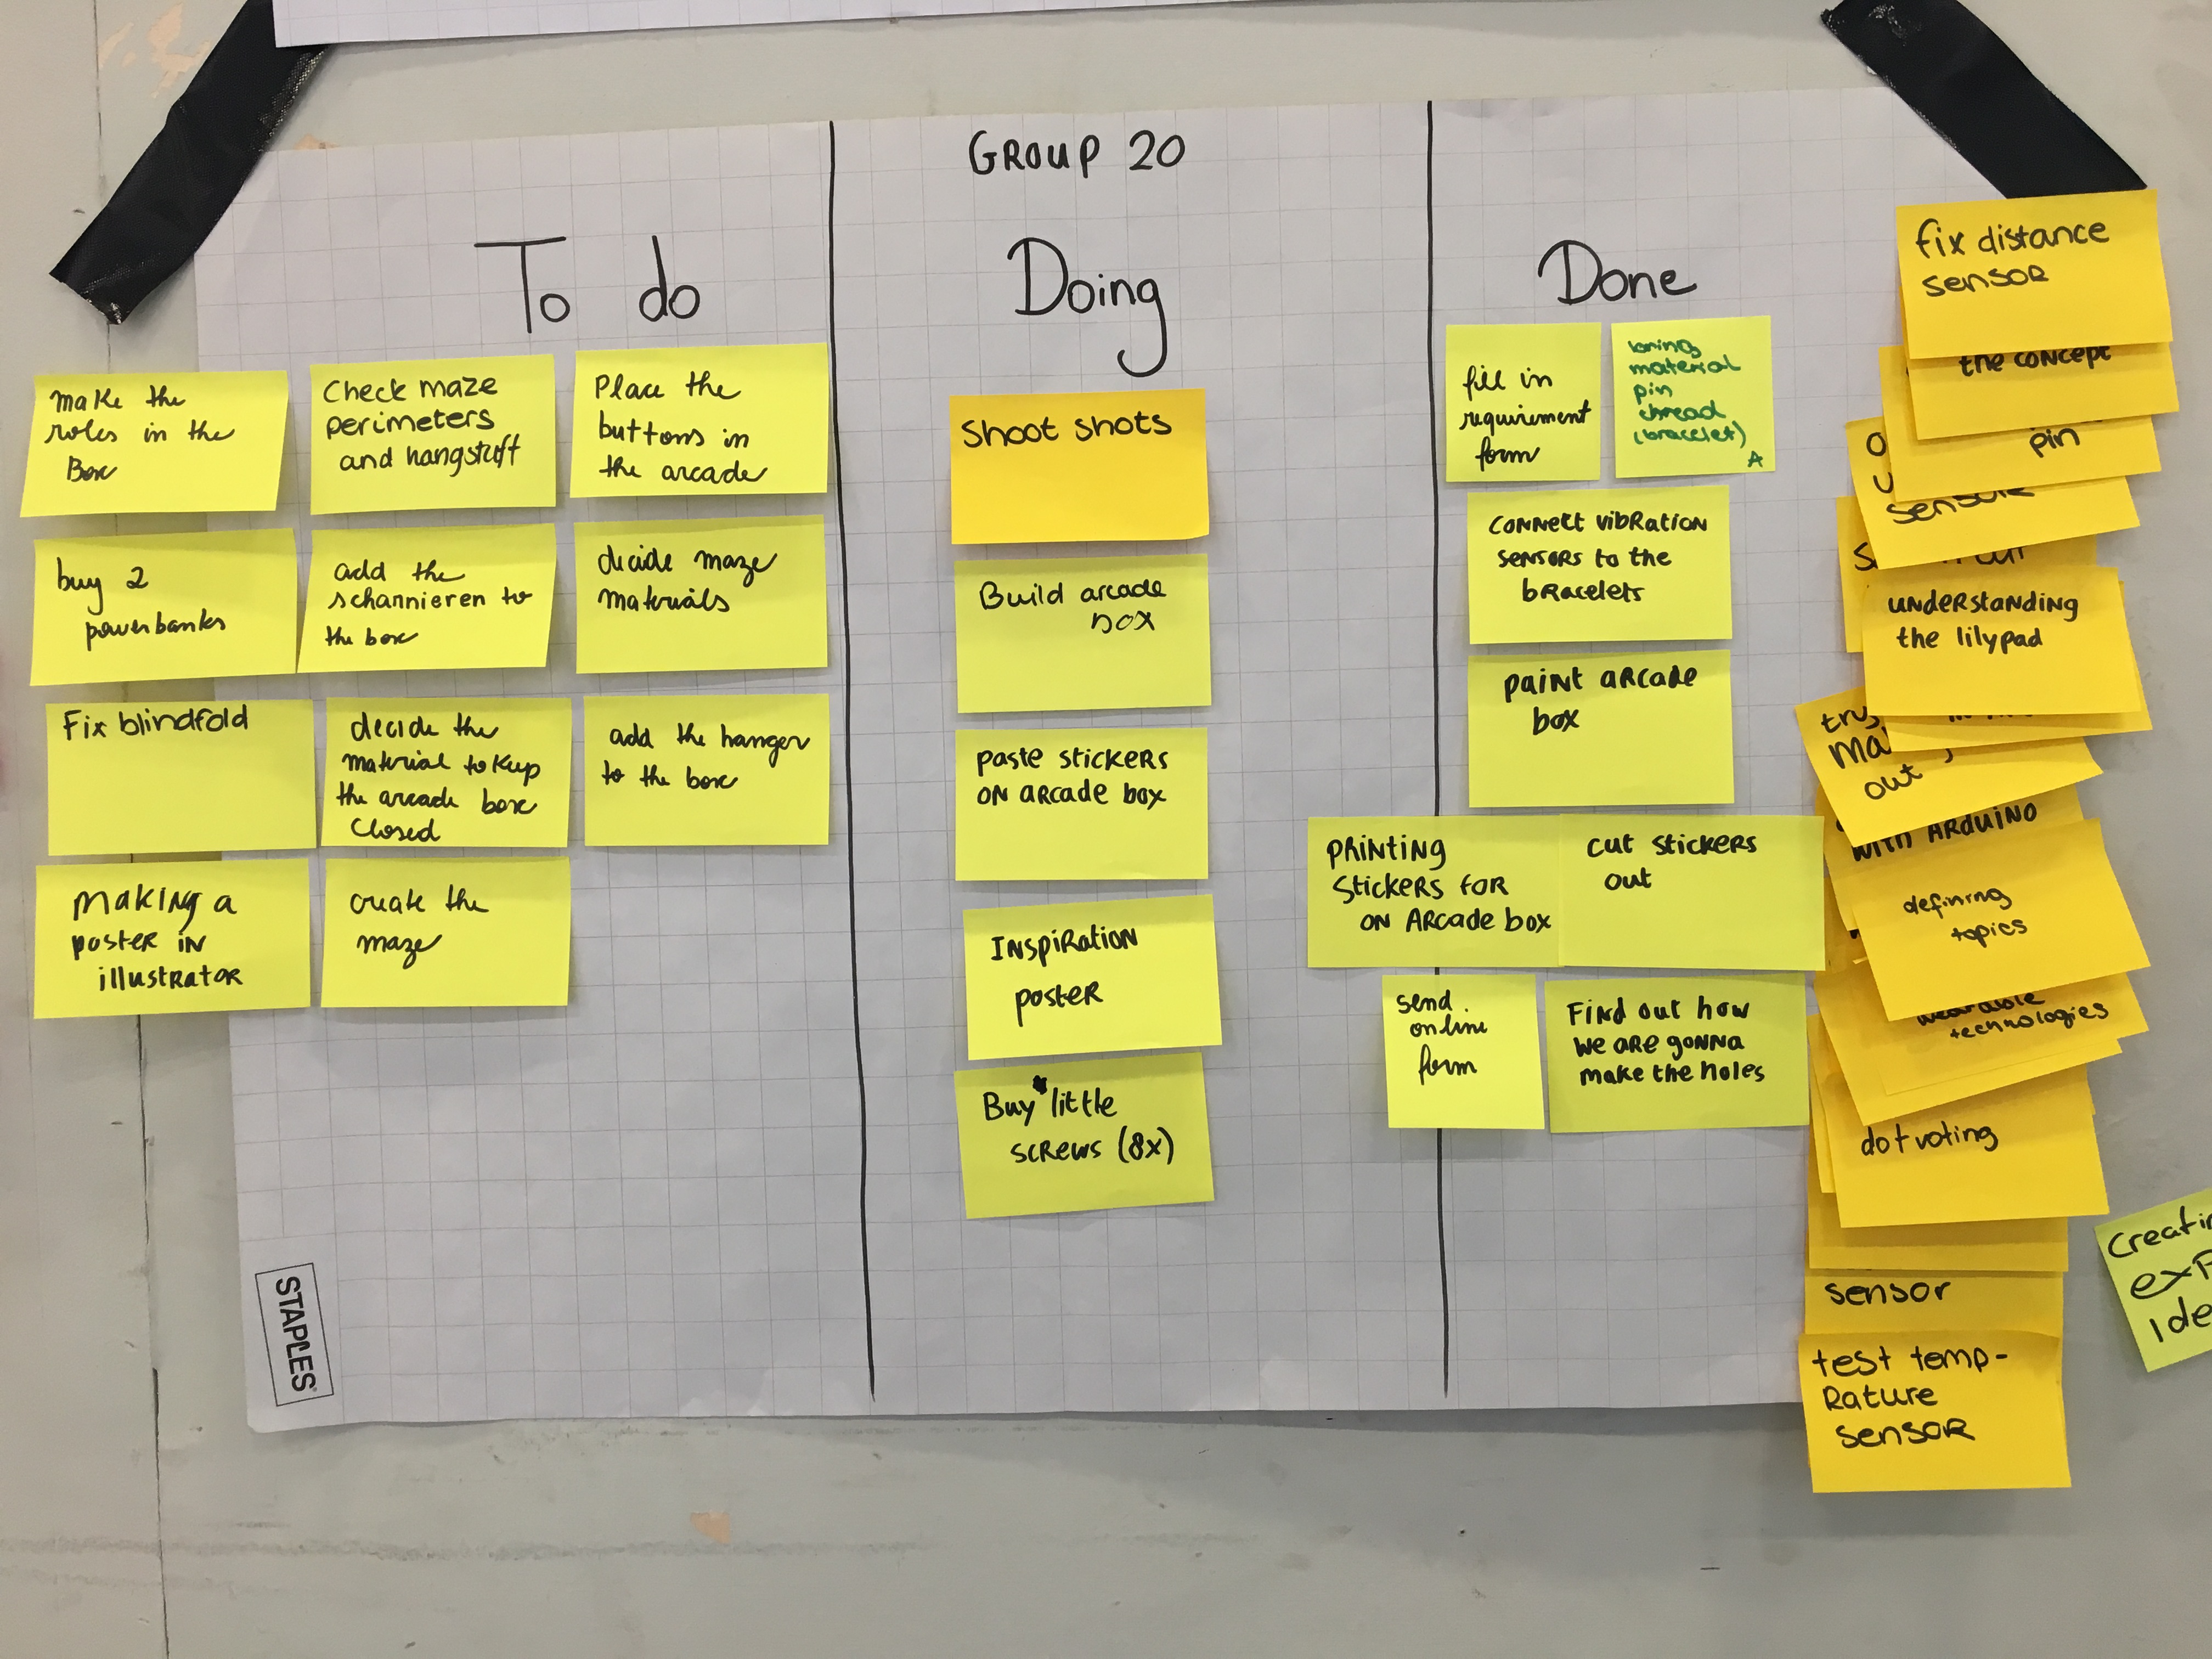 GROUP 20
To do
Doing
Done
make the
roles in the
Box
Check maze
perimeters
and hangstuff
Place the
buttons in
the arcade
buy 2
powerbanks
add the
scharnieren to
the box
decide maze
materials
Fix blindfold
decide the
material to keep
the arcade box
closed
add the hanger
to the box
making a
poster in
illustrator
create the
maze
Shoot shots
Build arcade
box
paste stickers
on arcade box
Inspiration
poster
Buy little
screws (8x)
fill in
requirement
form
material
pin
thread
(bracelet)
A
connect vibration
sensors to the
bracelets
paint arcade
box
printing
stickers for
on Arcade box
cut stickers
out
send
online
form
Find out how
we are gonna
make the holes
fix distance
sensor
the concept
pin
sensor
understanding
the lilypad
out
with Arduino
defining
topics
wearable
technologies
dot voting
sensor
test temp-
Rature
sensor
STAPLES